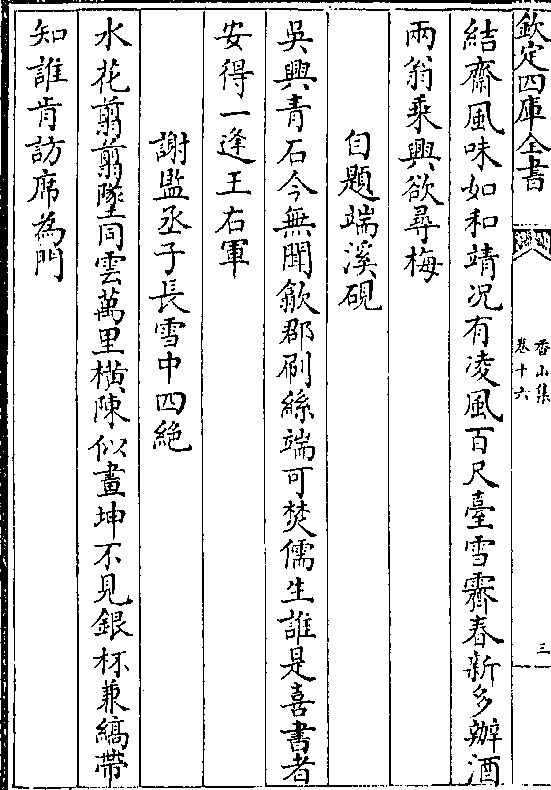 欽定四庫全書
香山集
卷十六
三
結齋風味如和靖况有凌風百尺臺雪霽春新多辦酒
兩翁乘興欲尋梅
自題端溪硯
吳興青石今無聞歙郡刷絲端可焚儒生誰是喜書者
安得一逢王右軍
謝監丞子長雪中四絶
水花翦翦墜同雲萬里橫陳似畫坤不見銀杯兼縞帶
知誰肯訪席為門